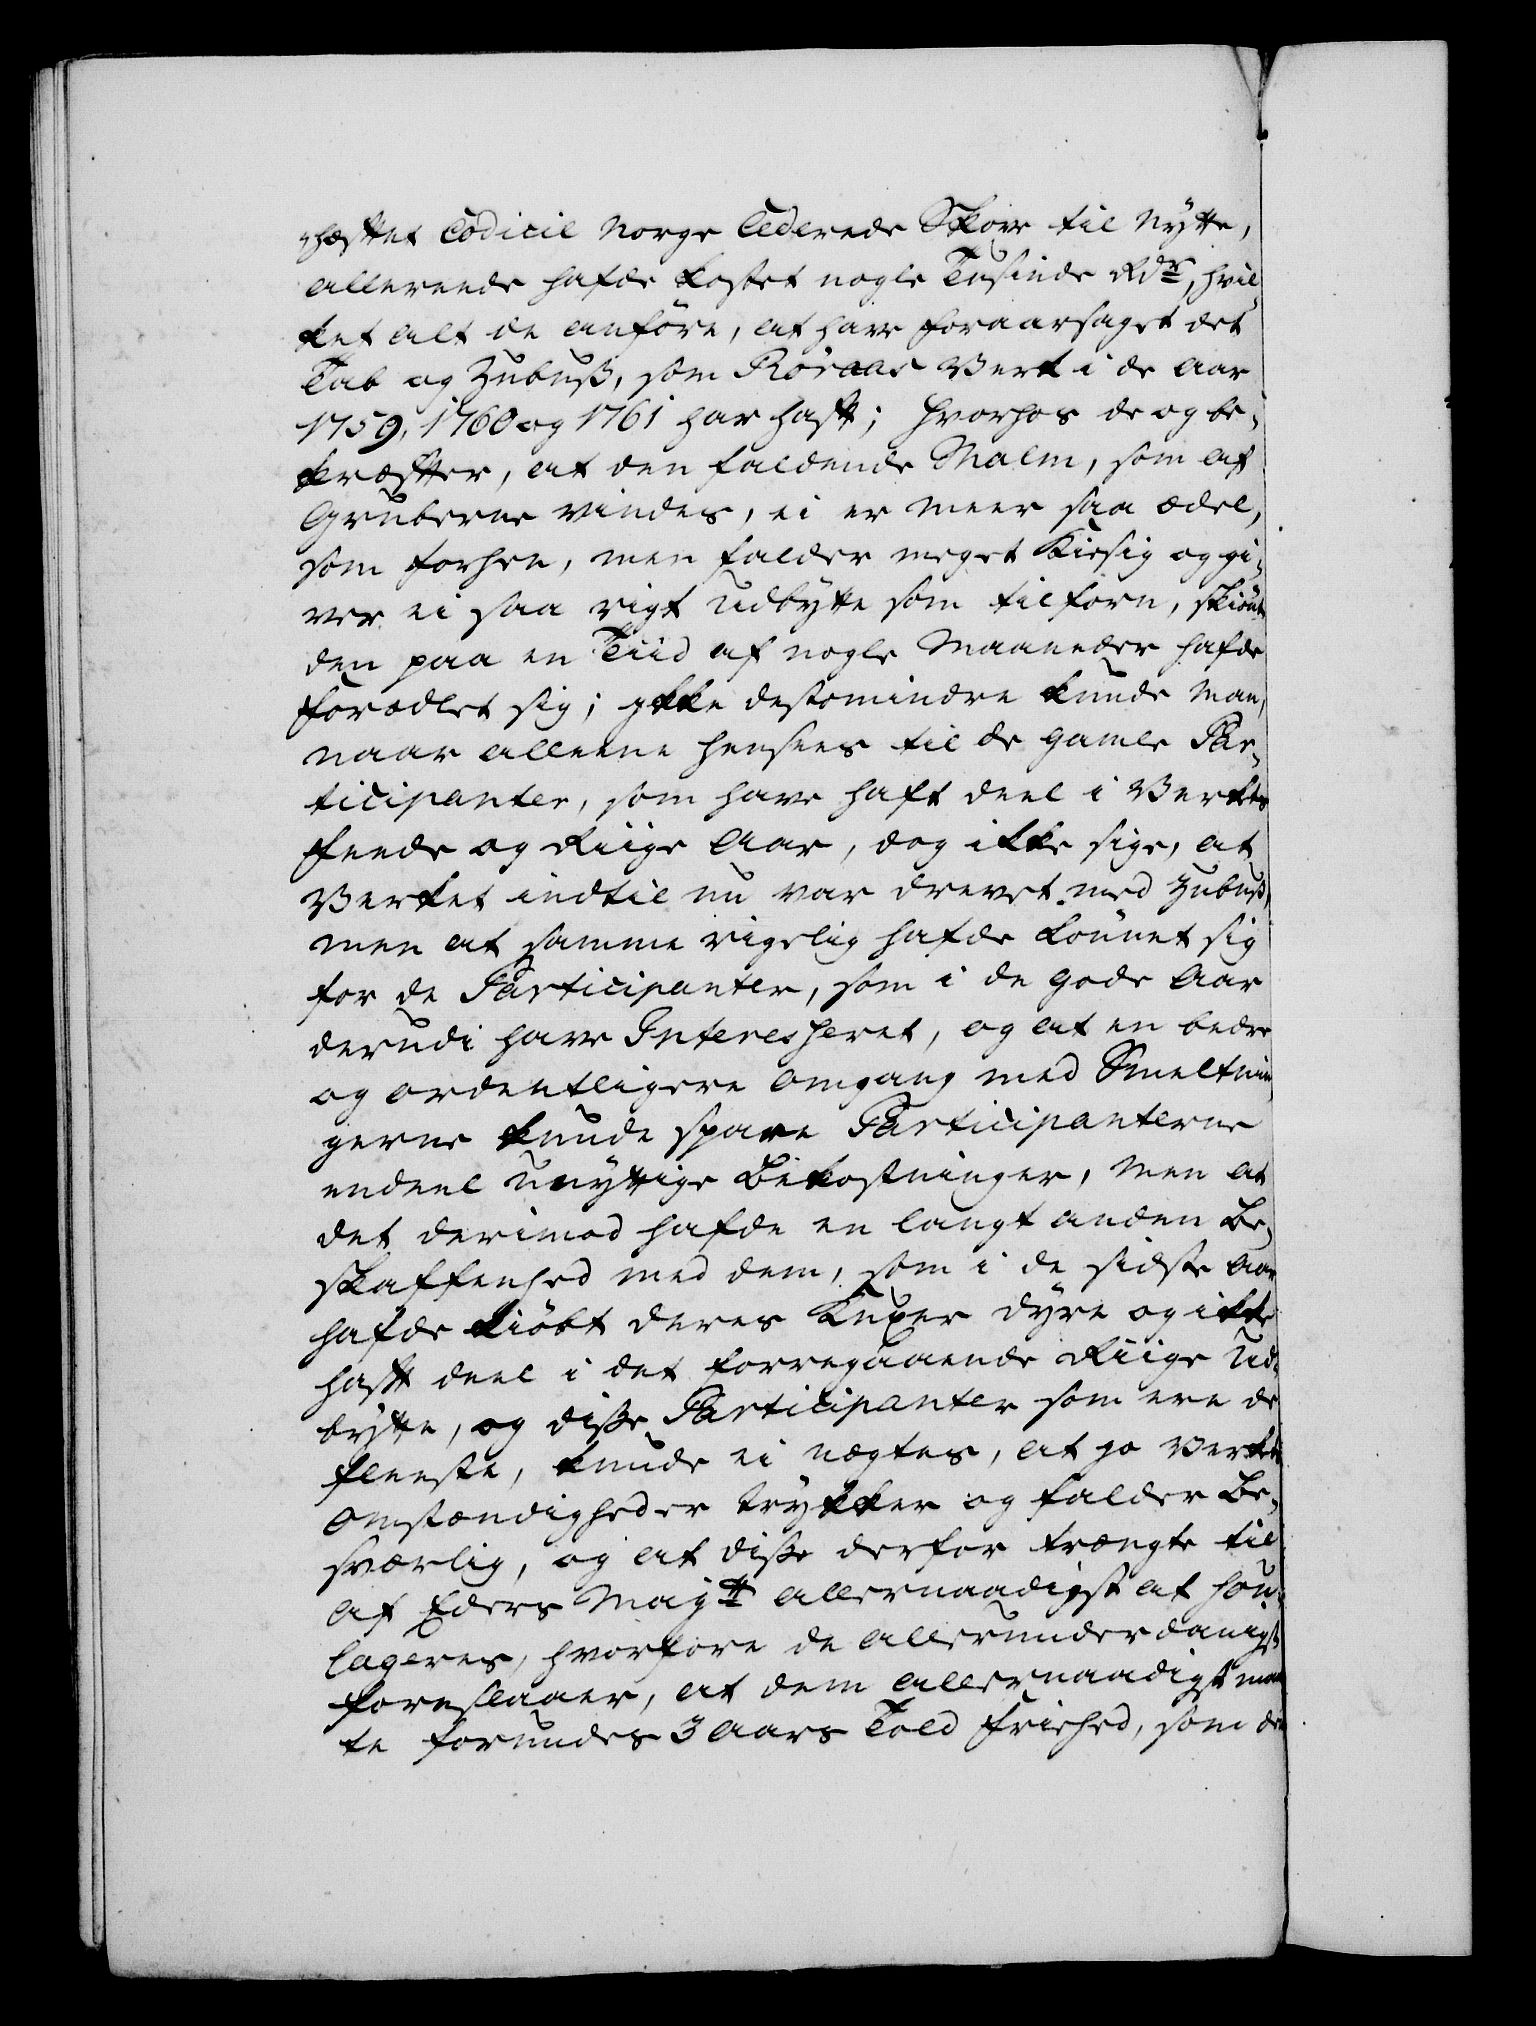 hæftet Codicil Norge Cederede Skove til Nytte,
allereede hafde kostet nogle Tusinde Rdr, hvil-
ket alt de anföre, at have foraarsaget det
Tab og Zubuß, som Röraas Verk i de Aar
1759, 1760 og 1761 har haft; hvorhos de og be-
kræfter, at den faldende Malm, som af
Gruberne vindes, ei er meer saa ædel,
som forhen, men falder meget Kiesig og gi-
ver ei saa rigt Udbytte som tilforn, skiönt
den paa en Tiid af nogle Maaneder hafde
forædlet sig; ykke destomindre kunde man,
naar alleene hensees til de gamle Par-
ticipanter, som have haft deel i Verkets
feede og Riige Aar, dog ikke sige, at
Verket indtil nu var drevet med Zubuß,
men at samme rigelig hafde lönnet sig
for de Participanter, som i de gode Aar
derudi have Interesheret, og at en bedre
og ordentligere Omgang med Smeltnin
gerne kunde spare Participanterne
endeel unyttige Bekostninger, Men at
det derimod hafde en langt anden Be-
skaffenhed med dem, som i de sidste Aar
hafde kiöbt deres Kuxer dyre og ikke
haft deel i det forregaaende Riige Ud-
bytte, og disse Participanter som ere de
fleeste, kunde ei nægtes, at jo Verkets
Omstændigheder trykker og falder Be-
sværlig, og at disse derfor trængte til
af Eders Maytt allernaadigst at sou-
lageres, hvorfore de allerunderdanigst
foreslaaer, at dem allernaadigst maa
te forundes 3 Aars Told Friehed, som de